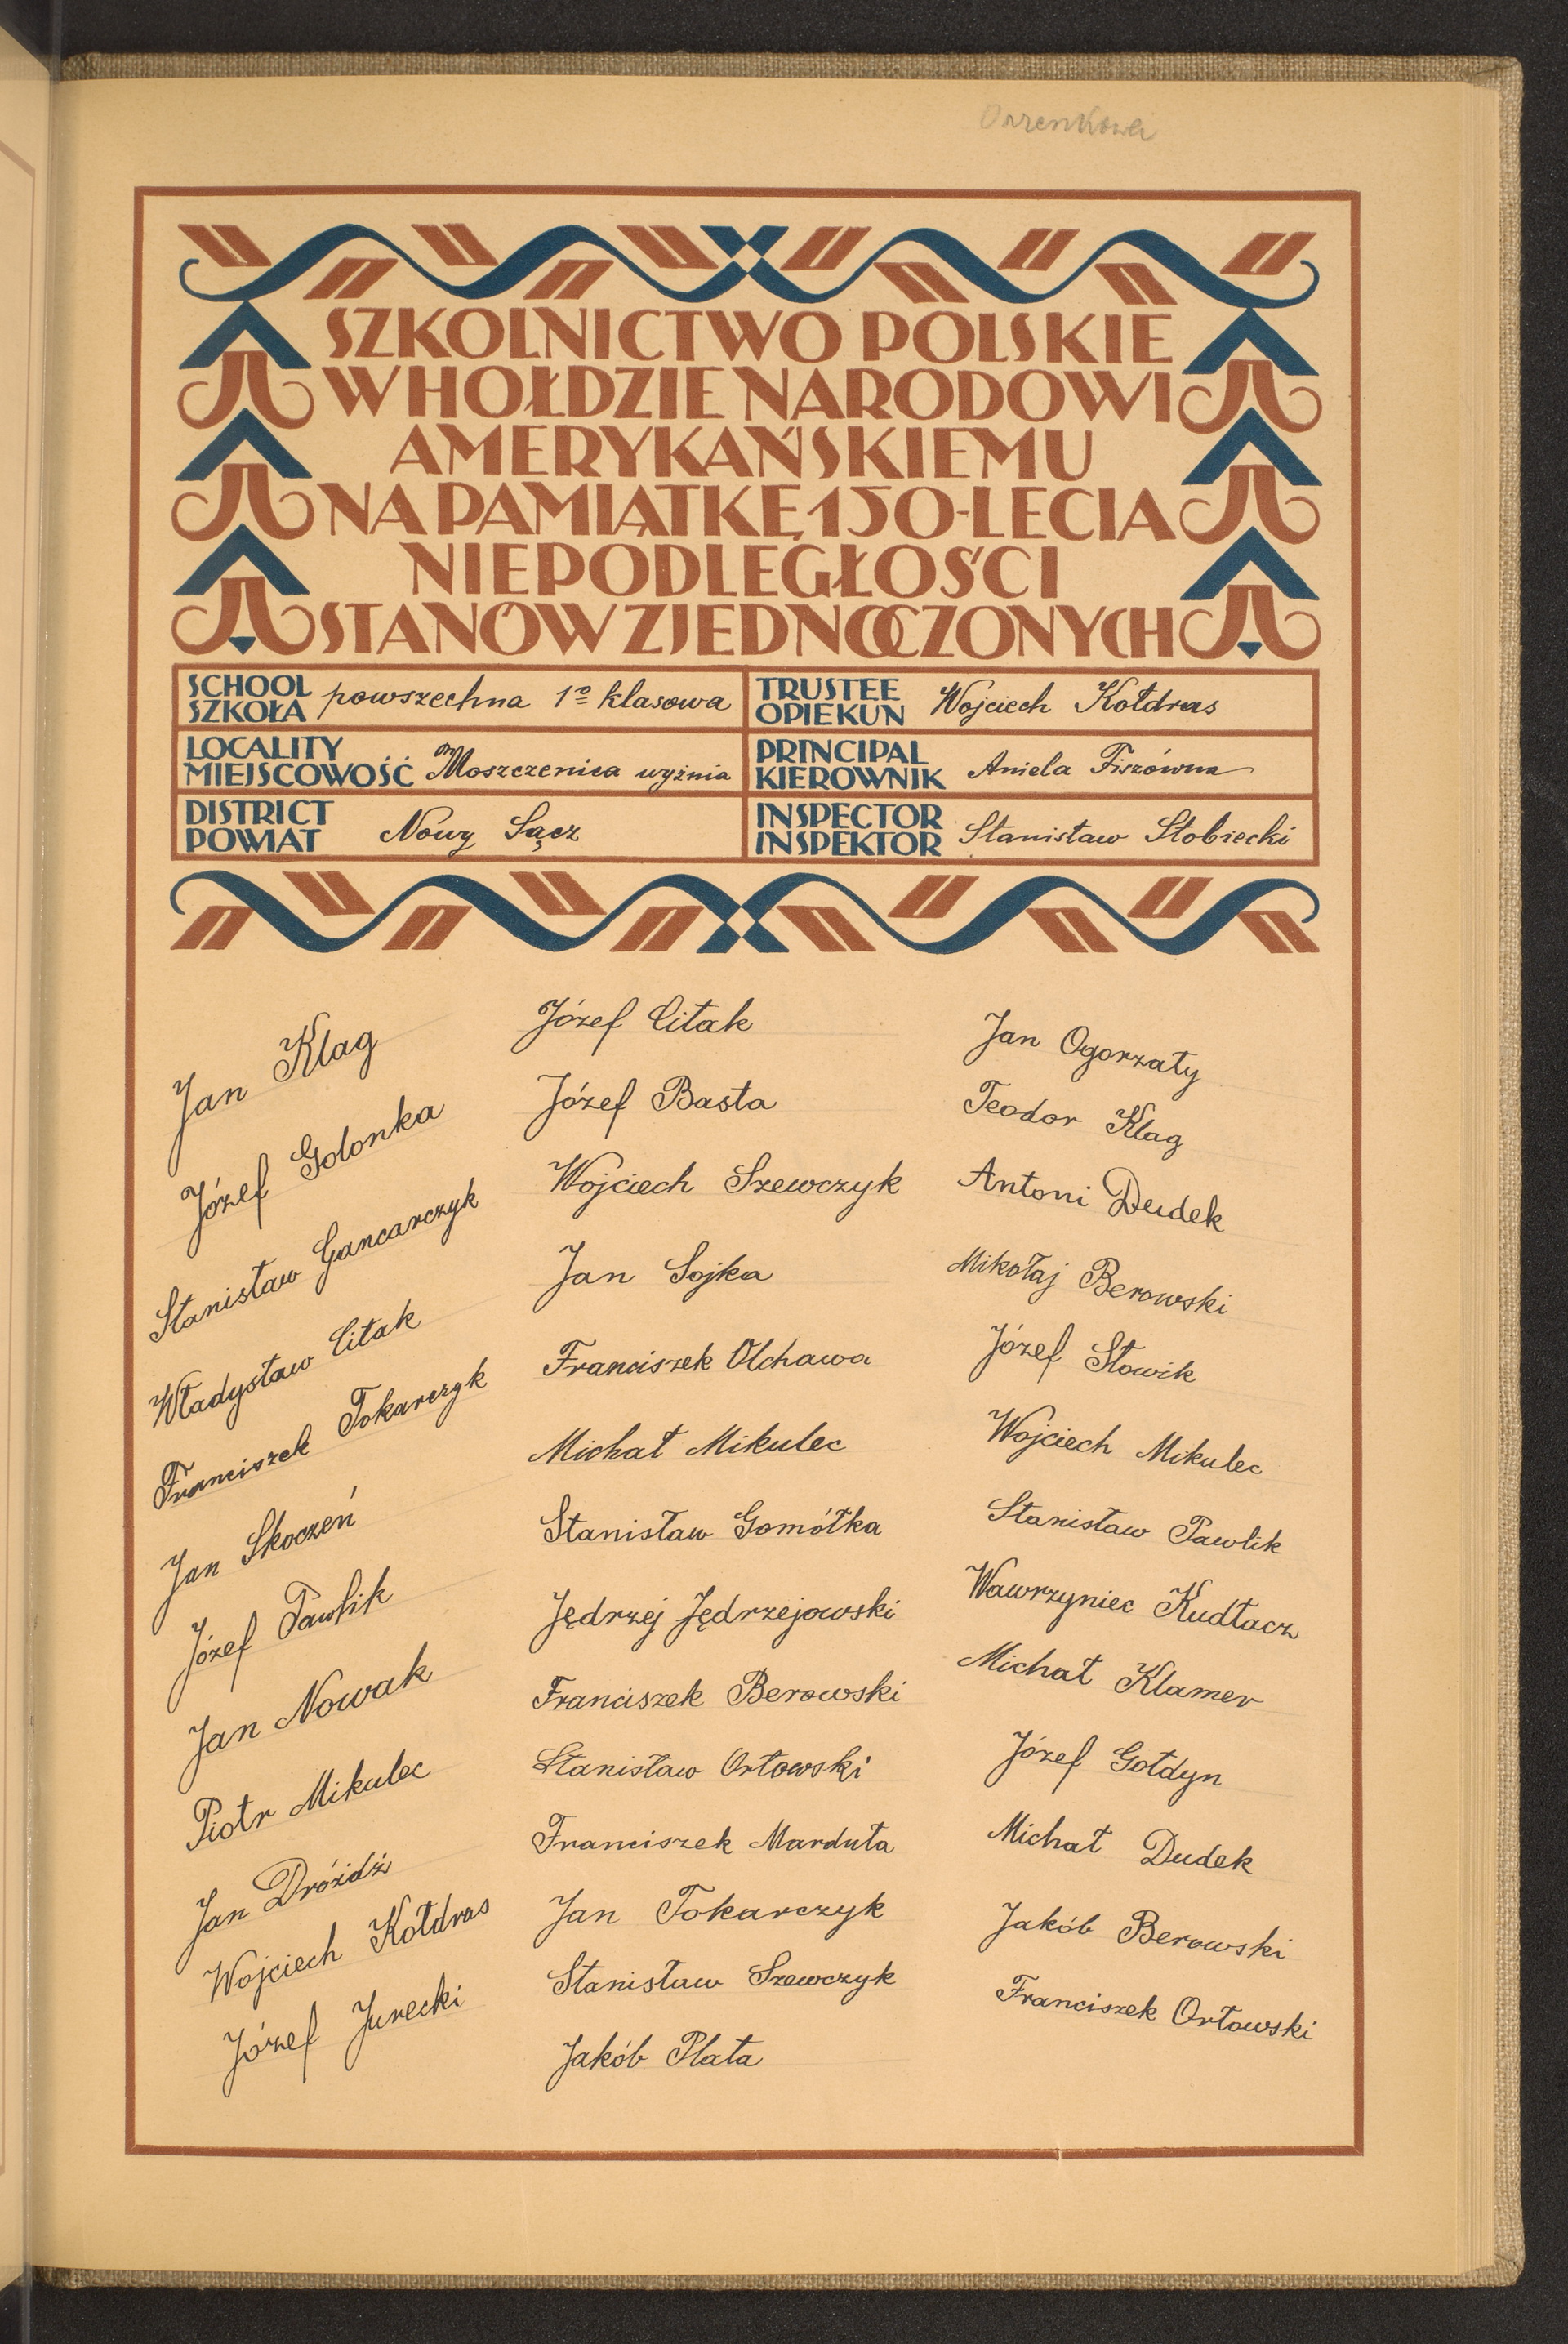 SZKOLNICTWO POLSKIE
W HOŁDZIE NARODOWI
AMERYKAŃSKIEMU
NA PAMIĄTKĘ 150-LECIA
NIEPODLEGŁOŚCI
STANÓW ZJEDNOCZONYCH
SCHOOL
SZKOŁA powszechna 1º klasowa
TRUSTEE
OPIEKUN Wojciech Kołdras
LOCALITY
MIEJSCOWOŚĆ Moszczenica wyżnia
PRINCIPAL
KIEROWNIK Aniela Fiszówna
DISTRICT
POWIAT Nowy Sącz
INSPECTOR
INSPEKTOR Stanisław Słobiecki
Jan Klag
Józef Golonka
Stanisław Gancarczyk
Władysław Citak
Franciszek Tokarczyk
Jan Skoczeń
Józef Pawlik
Jan Nowak
Piotr Mikulec
Jan Dróżdż
Wojciech Kołdras
Józef Jurecki
Józef Citak
Józef Basta
Wojciech Szewczyk
Jan Sojka
Franciszek Olchawa
Michał Mikulec
Stanisław Gomółka
Jędrzej Jędrzejowski
Franciszek Berowski
Stanisław Orłowski
Franciszek Marduła
Jan Tokarczyk
Stanisław Szewczyk
Jakób Plata
Jan Ogorzały
Teodor Klag
Antoni Dudek
Mikołaj Berowski
Józef Słowik
Wojciech Mikulec
Stanisław Pawlik
Wawrzyniec Kudłacz
Michał Klamer
Józef Gołdyn
Michał Dudek
Jakób Berowski
Franciszek Orłowski